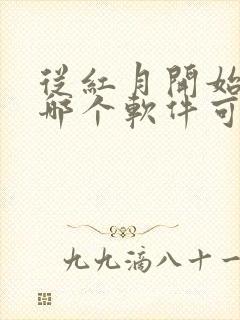 從紅月開始
哪个軟件可
九九滴八十一